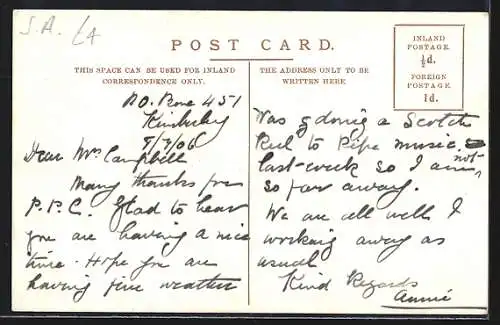 S.A. L4
POST CARD.
THIS SPACE CAN BE USED FOR INLAND
CORRESPONDENCE ONLY.
THE ADDRESS ONLY TO BE
WRITTEN HERE
INLAND
POSTAGE
½d.
FOREIGN
POSTAGE
1d.
P.O. Box 451
Kimberley
9/7/06
Dear Mrs Campbell
Many thanks for
P.P.C. Glad to hear
you are having a nice
time. Hope you are
having fine weather
Was doing a Scotch
Reel to Pipe music
last week so I am not
so far away.
We are all well I
working away as
usual
Kind Regards
Annie